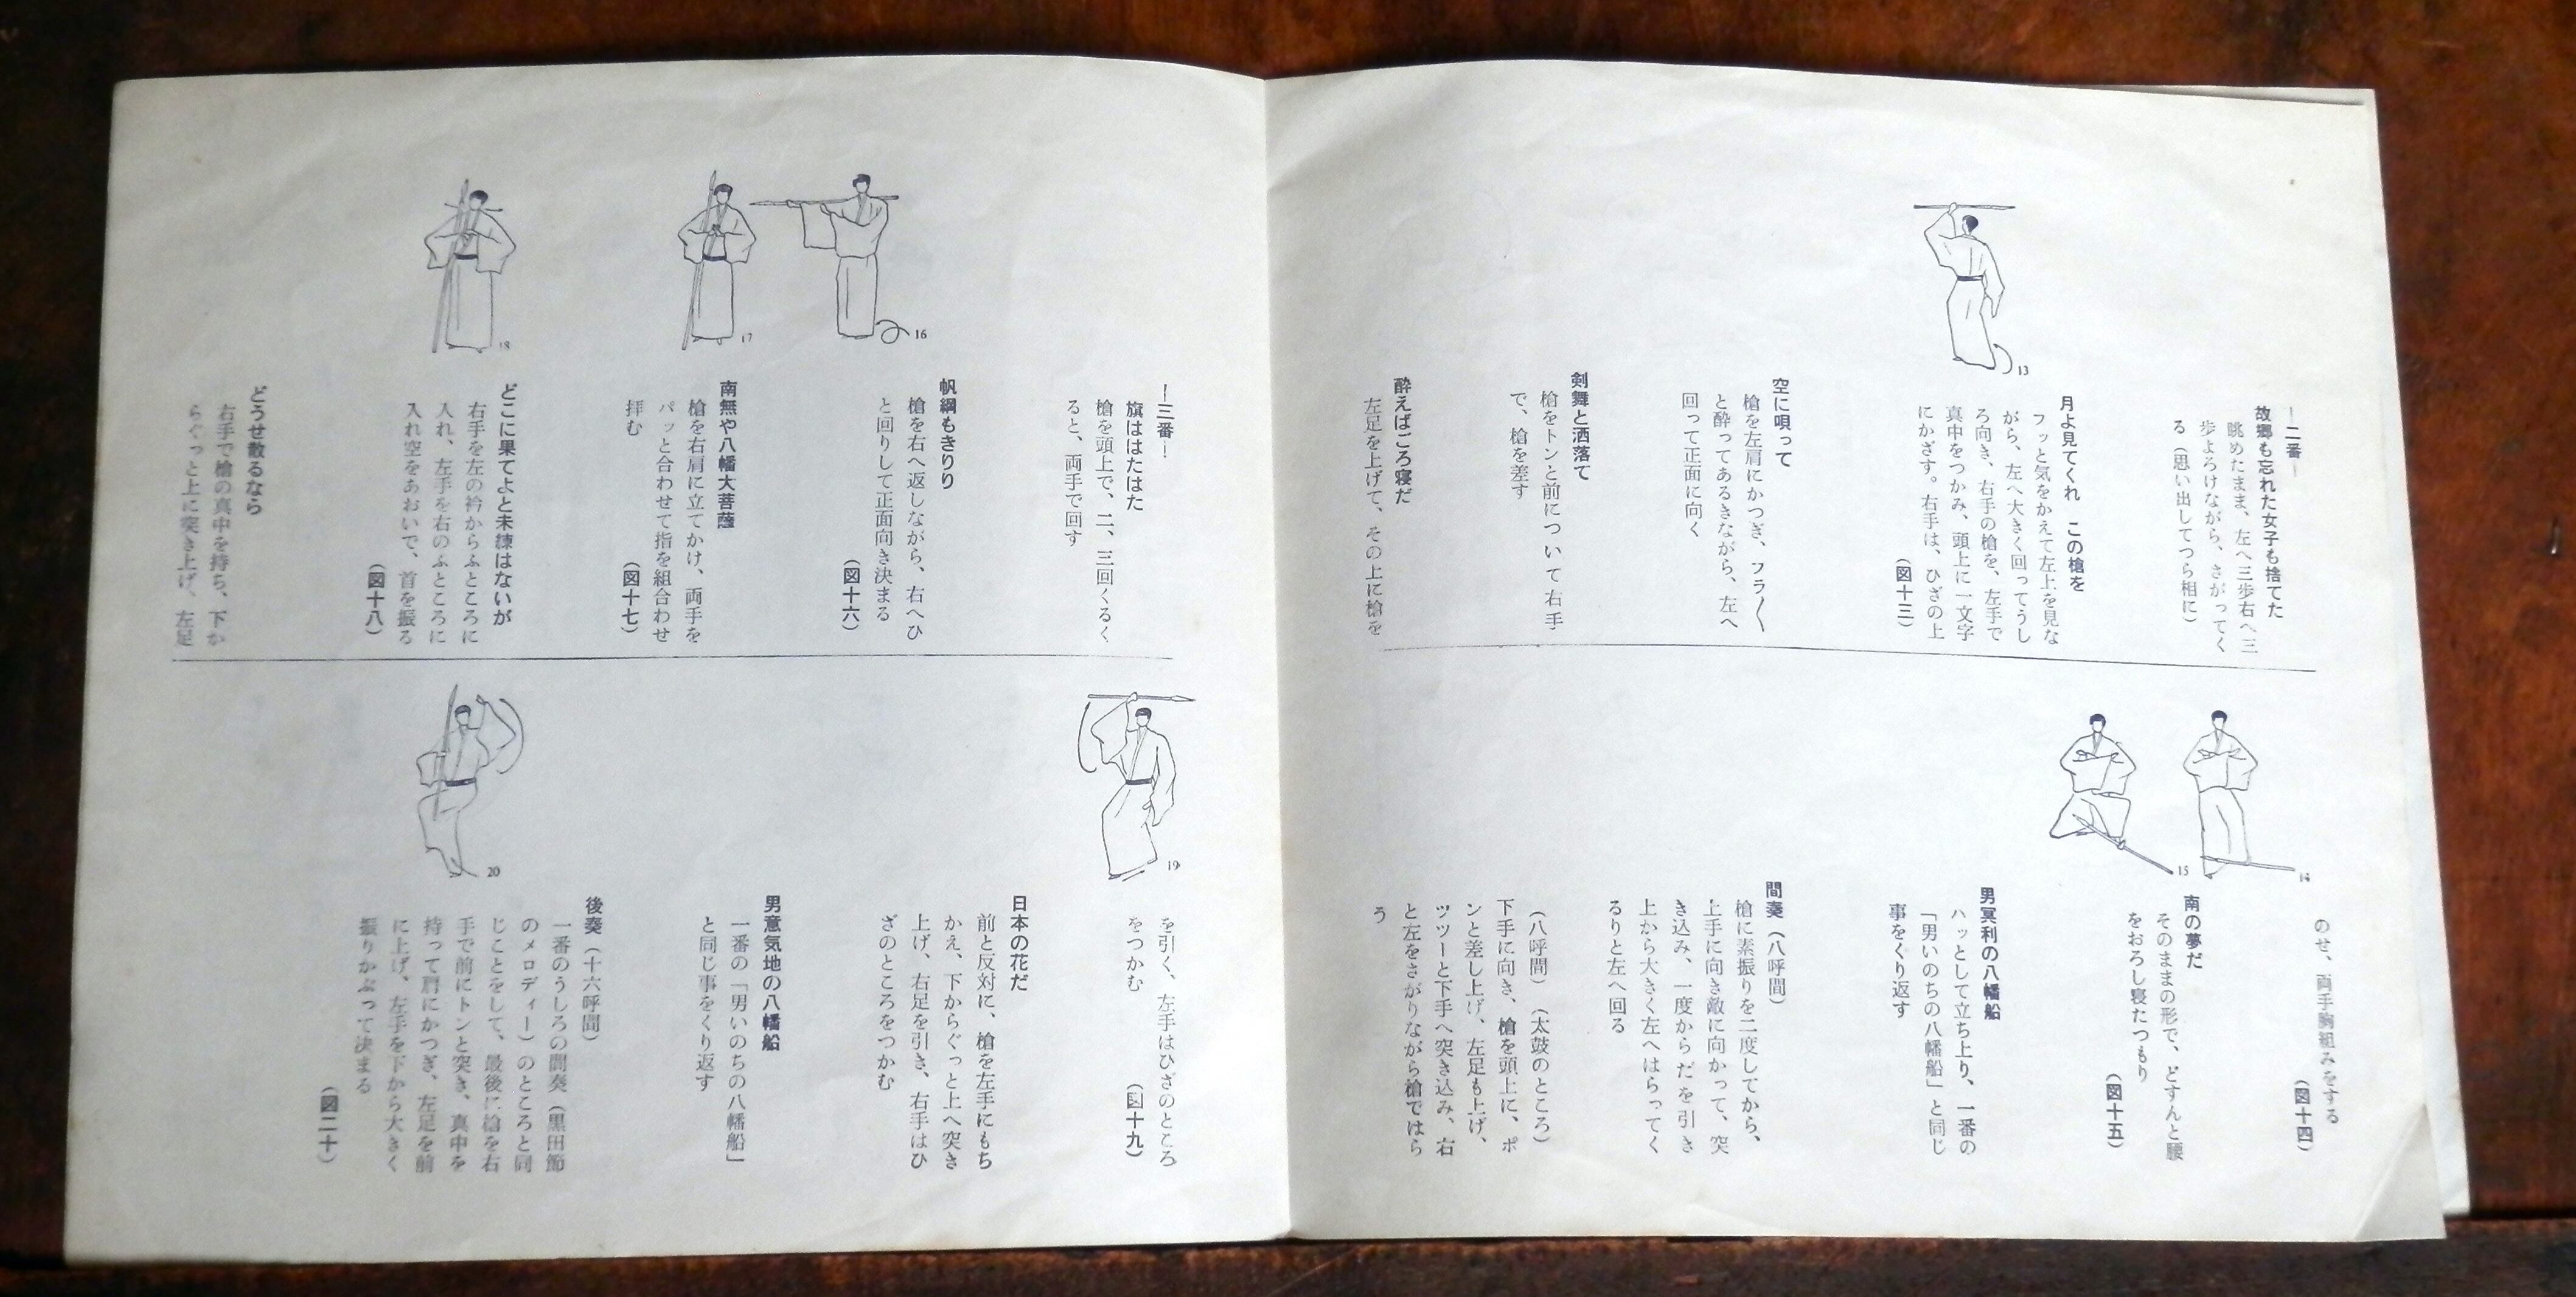 ―二番―
故郷も忘れた女子も捨てた
眺めたまま、左へ三歩右へ三
歩よろけながら、さがってく
る（思い出してつら相に）
月よ見てくれ　この槍を
フッと気をかえて左上を見な
がら、左へ大きく回ってうし
ろ向き、右手の槍を、左手で
真中をつかみ、頭上に一文字
にかざす。右手は、ひざの上
（図十三）
空に唄って
槍を左肩にかつぎ、フラ〱
と酔ってあるきながら、左へ
回って正面に向く
剣舞と洒落て
槍をトンと前について右手
で、槍を差す
酔えばごろ寝だ
左足を上げて、その上に槍を
13
14
15
のせ、両手胸組みをする
（図十四）
南の夢だ
そのままの形で、どすんと腰
をおろし寝たつもり
（図十五）
男冥利の八幡船
ハッとして立ち上り、一番の
「男いのちの八幡船」と同じ
事をくり返す
間奏（八呼間）
槍に素振りを二度してから、
上手に向き敵に向かって、突
き込み、一度からだを引き
上から大きく左へはらってく
るりと左へ回る
（八呼間）（太鼓のところ）
下手に向き、槍を頭上に、ポ
ンと差し上げ、左足も上げ、
ツツーと下手へ突き込み、右
と左をさがりながら槍ではら
う
―三番―
旗ははたはた
槍を頭上で、二、三回くるく
ると、両手で回す
帆綱もきりり
槍を右へ返しながら、右へひ
と回りして正面向き決まる
（図十六）
南無や八幡大菩薩
槍を右肩に立てかけ、両手を
パッと合わせて指を組合わせ
拝む
（図十七）
どこに果てよと未練はないが
右手を左の衿からふところに
入れ、左手を右のふところに
入れ空をあおいで、首を振る
（図十八）
どうせ散るなら
右手で槍の真中を持ち、下か
らぐっと上に突き上げ、左足
16
17
18
19
20
を引く、左手はひざのところ
をつかむ
（図十九）
日本の花だ
前と反対に、槍を左手にもち
かえ、下からぐっと上へ突き
上げ、右足を引き、右手はひ
ざのところをつかむ
男意気地の八幡船
一番の「男いのちの八幡船」
と同じ事をくり返す
後奏（十六呼間）
一番のうしろの間奏（黒田節
のメロディー）のところと同
じことをして、最後に槍を右
手で前にトンと突き、真中を
持って肩にかつぎ、左足を前
に上げ、左手を下から大きく
振りかぶって決まる
（図二十）